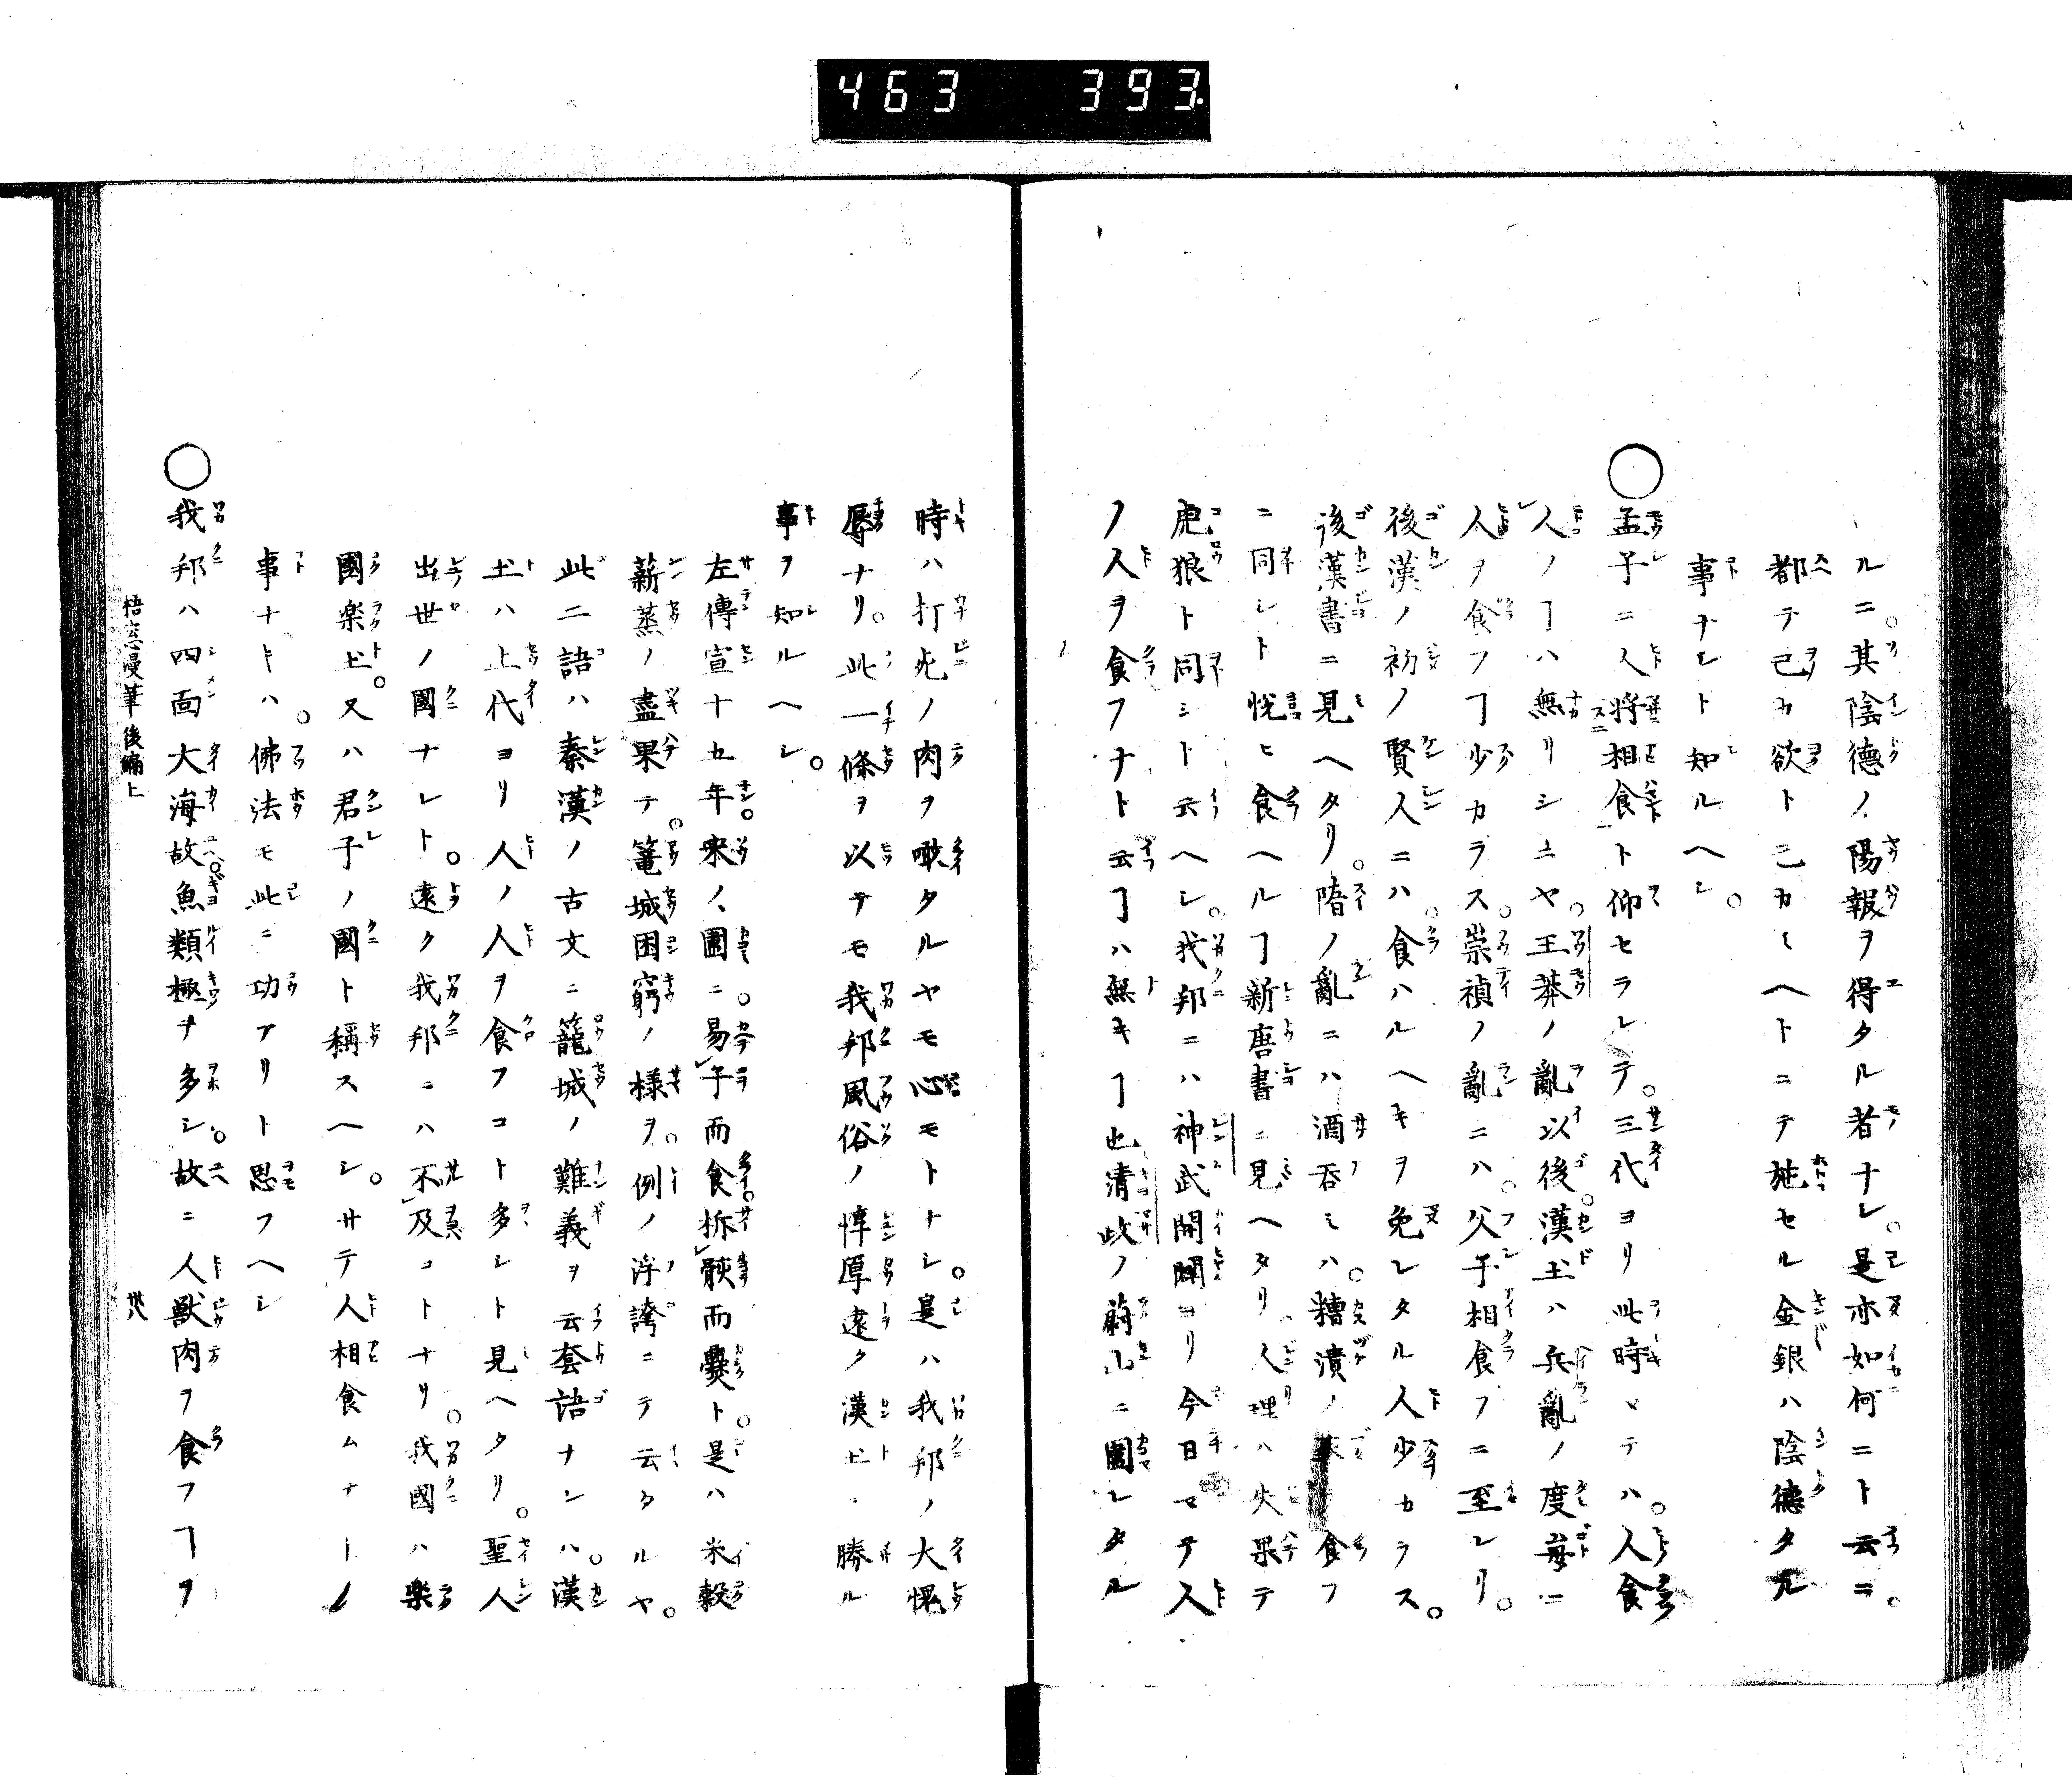 463 393.
ルニ。其陰徳ノ陽報ヲ得タル者ナシ。是亦如何ニト云ニ。
都テ己カ欲ト己カミヘトニテ施セル金銀ハ陰徳タル
事ナシト知ルヘシ。
○孟子ニ人将相食ト仰セラレテ。三代ヨリ此時マテハ。人食
人ノヿハ無リシニヤ。王莽ノ亂以後。漢土ハ兵亂ノ度毎ニ
人ヲ食フヿ少カラス。崇禎ノ亂ニハ。父子相食フニ至レリ。
後漢ノ初ノ賢人ニハ。食ハルヘキヲ免レタル人少カラス。
後漢書ニ見ヘタリ。隋ノ亂ニハ酒呑ミハ。糟漬ノ 食フ
ニ同シト悦ヒ食ヘルヿ新唐書ニ見ヘタリ人理ハ失果テ
虎狼ト同シト云ヘシ。我邦ニハ神武開闢ヨリ今日マテ人
ノ人ヲ食フナト云ヿハ無キヿ也清政ノ蔚山ニ圍レタル
時ハ打死ノ肉ヲ噉タルヤモ心モトナシ。是ハ我邦ノ大愧
辱ナリ。此一條ヲ以テモ我邦風俗ノ惇厚遠ク漢土ニ勝ル
事ヲ知ルヘシ。
左傳宣十五年。宋ノ圍ニ。易子而食。析骸而爨ト。是ハ米穀
薪蒸ノ盡果テ。籠城困窮ノ様ヲ。例ノ浮誇ニテ云タルヤ。
此二語ハ秦漢ノ古文ニ籠城ノ難義ヲ云套語ナレハ。漢
土ハ上代ヨリ人ノ人ヲ食フコト多シト見ヘタリ。聖人
出世ノ國ナレト。遠ク我邦ニハ不及コトナリ。我國ハ楽
國楽土。又ハ君子ノ國ト稱スヘシ。サテ人相食ムナトノ
事ナトハ。佛法モ此ニ功アリト思フヘシ
○我邦ハ四面大海故。魚類極テ多シ。故ニ人獸肉ヲ食フヿヲ
梧窓漫筆後編上 卅八